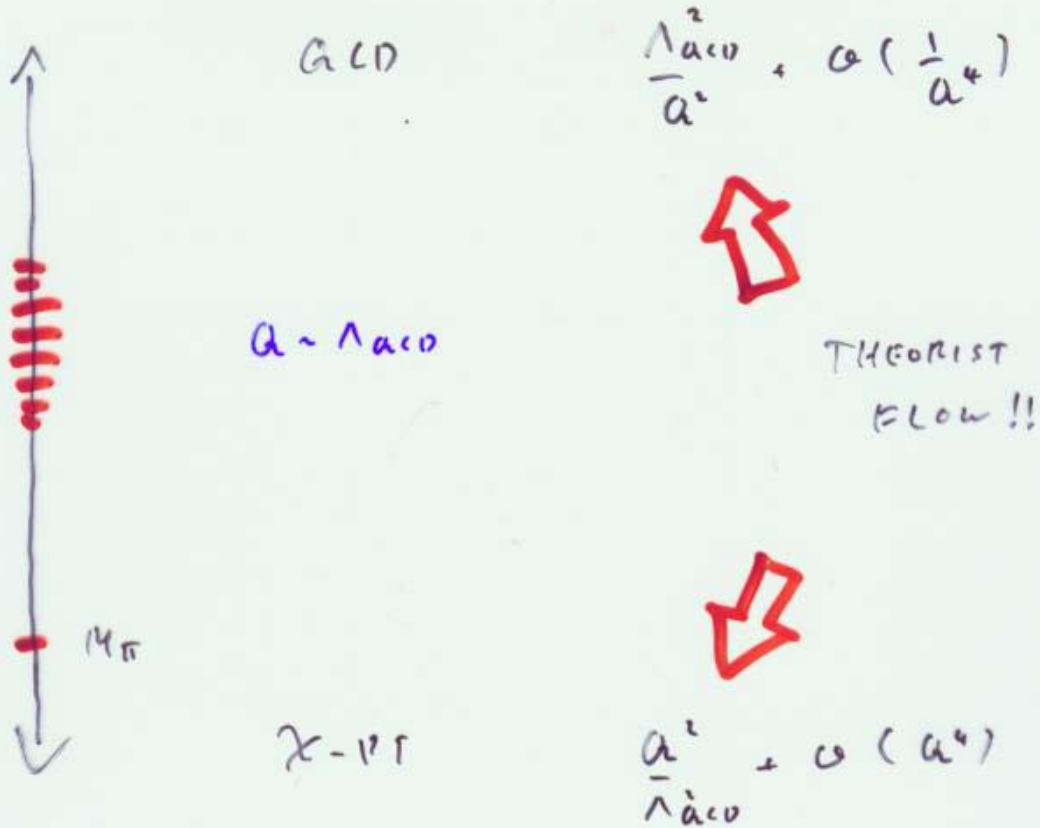 QCD
Λ²_QCD / Q² + O(1/Q⁴)
Q ~ Λ_QCD
THEORIST
FLOW !!
M_π
χ-PT
Q² / Λ²_QCD + O(Q⁴)